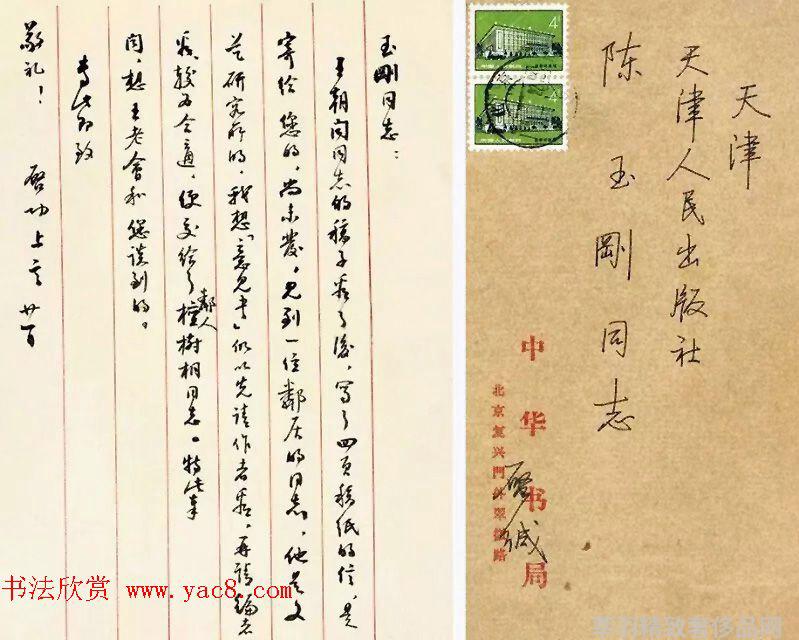 玉剛同志：
王朝闻同志的稿子看了后，写了四页稿纸的信，是
寄给您的，尚未发，见到一位鄰居的同志，他是文
艺研究所的，我想「意见书」似以先请作者看，再請編者
看，较为合適，便交给了鄰人 樹相同志。特此奉
闻，想王老會和您谈到的。
专此即致
敬礼！ 启功上言 廿日
天津
天津人民出版社
陈玉剛同志
中华书局
北京复兴門外翠微路
啓缄
4
4
书法欣赏 www.yac8.com